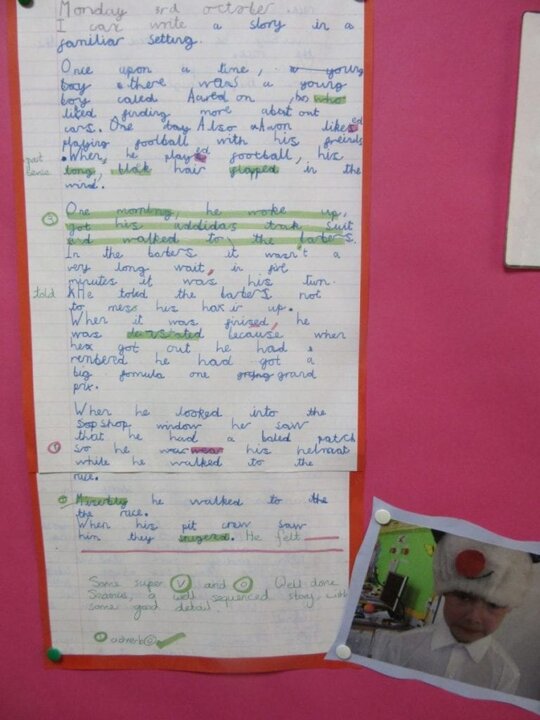 Monday 3rd october.
I can write a story in a
familiar setting.
Once upon a time, a young
boy & there was a young
boy called Aared on, his who
liked finding more about out
cars. One day Also Aaron likes ed
playing football with his freinds
. When he played football, his
long, blak hair flapped in the
wind.
One morning, he woke up,
got his addidas trak suit
and walked to the barbers.
In the barbers it wasn't a
very long wait, in
minutes it was his turn.
told He toled the barbers not
to mess his hair up.
When it was finised, he
was because when
he got out he had a
he had got a
big fomula one grand
prix.
When he looked into the
shop window he saw
that he had a baled patch
so he wear his helmat
while he walked to the
race.
he walked to the
the race.
When his pit crew saw
him they snigerd. He felt
Some super V and O Well done
a well sequenced story with
some good detail.
adverb